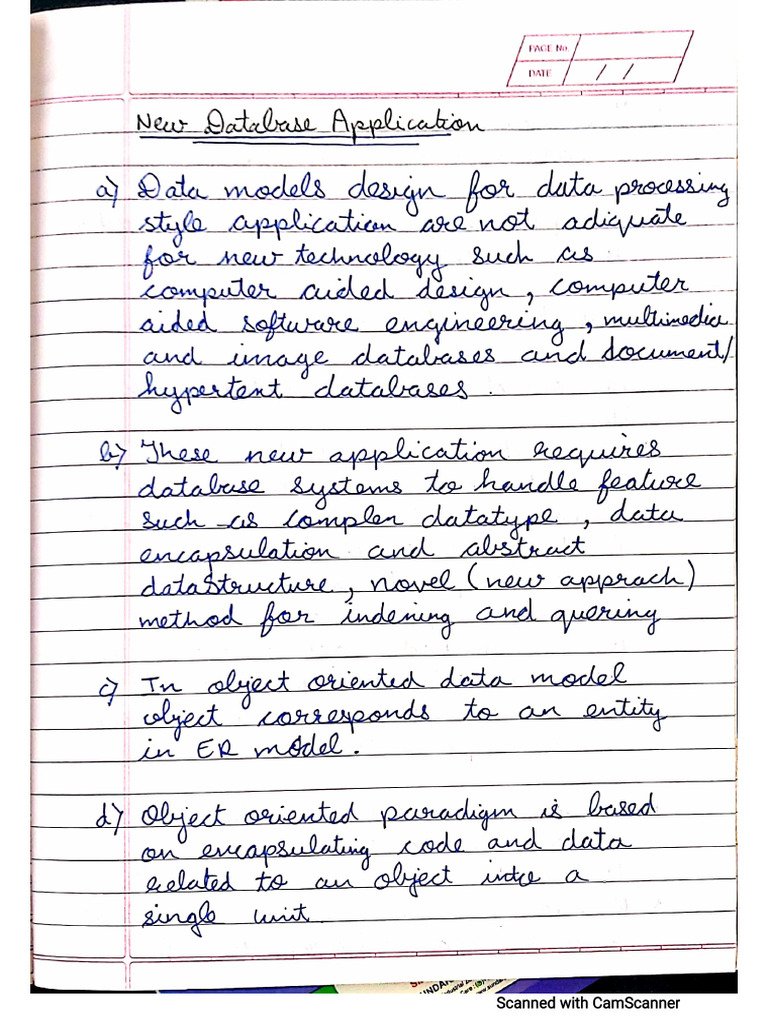 PAGE No.
DATE / /
New Database Application
a) Data models design for data processing
style application are not adiquate
for new technology such as
computer aided design, computer
aided software engineering, multimedia
and image databases and document/
hypertent databases.
b) These new application requires
database systems to handle feature
such as complen datatype, data
encapsulation and abstract
datastructure, novel (new apprach)
method for indening and quering
c) In object oriented data model
object corresponds to an entity
in ER model.
d) Object oriented paradigm is based
on encapsulating code and data
related to an object into a
single unit
Scanned with CamScanner